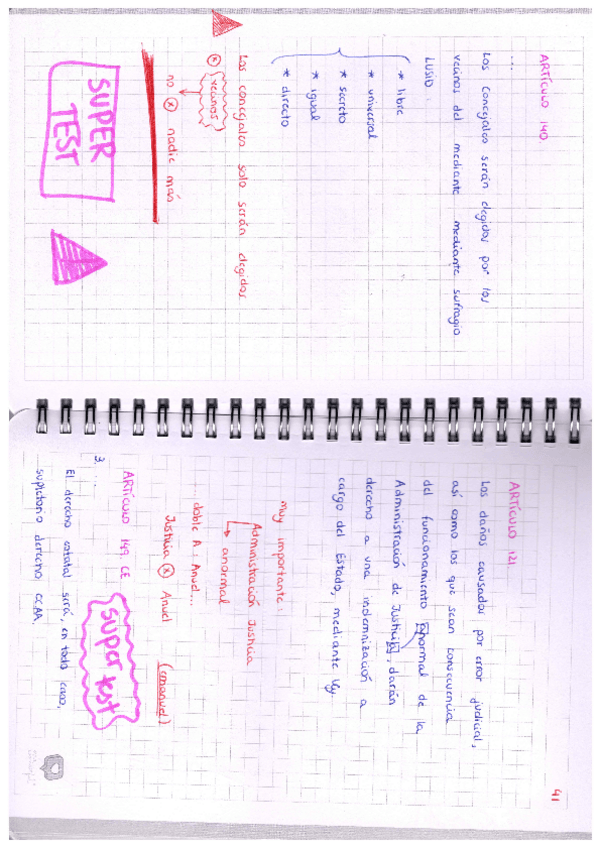 ARTÍCULO 140.
...
Los concejales serán elegidos por los
vecinos del mediante mediante sufragio
LUSID:
* libre
* universal
* secreto
* igual
* directo
Los concejales solo serán elegidos
x vecinos
no x nadie más
SUPER
TEST
41
ARTÍCULO 121
Los daños causados por error judicial,
así como los que sean consecuencia
del funcionamiento anormal de la
Administración de Justicia, darán
derecho a una indemnización a
cargo del Estado, mediante ley
muy importante:
Administración Justicia
anormal
doble A: Anuel...
Justicia x Anuel (emanuel)
ARTÍCULO 149 CE
super test
3. ...
El derecho estatal será, en todo caso,
supletorio derecho CCAA.